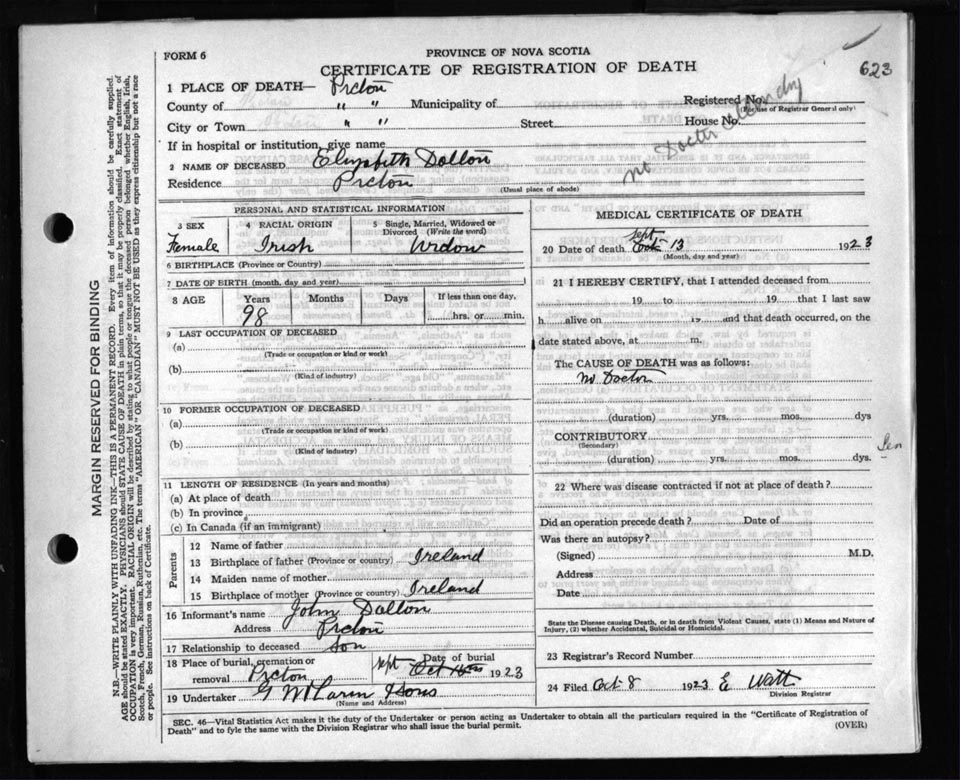 FORM 6
PROVINCE OF NOVA SCOTIA
CERTIFICATE OF REGISTRATION OF DEATH
623
1 PLACE OF DEATH— Picton
County of " " Municipality of Registered No.
(For use of Registrar General only)
City or Town " " Street House No.
If in hospital or institution, give name
no Doctor attending
2 NAME OF DECEASED Elizabeth Dalton
Residence Picton
(Usual place of abode)
PERSONAL AND STATISTICAL INFORMATION
3 SEX 4 RACIAL ORIGIN 5 Single, Married, Widowed or Divorced (Write the word)
Female Irish Widow
6 BIRTHPLACE (Province or Country)
7 DATE OF BIRTH (month, day and year)
8 AGE Years Months Days If less than one day,
98 hrs. or min.
9 LAST OCCUPATION OF DECEASED
(a)
(Trade or occupation or kind or work)
(b)
(Kind of industry)
10 FORMER OCCUPATION OF DECEASED
(a)
(Trade or occupation or kind or work)
(b)
(Kind of industry)
11 LENGTH OF RESIDENCE (In years and months)
(a) At place of death
(b) In province
(c) In Canada (if an immigrant)
Parents
12 Name of father
13 Birthplace of father (Province or country) Ireland
14 Maiden name of mother
15 Birthplace of mother (Province or country) Ireland
16 Informant's name John Dalton
Address Picton
17 Relationship to deceased Son
18 Place of burial, cremation or removal Picton Date of burial Sept Oct 1923
19 Undertaker & Sons
(Name and Address)
MEDICAL CERTIFICATE OF DEATH
20 Date of death Sept Oct 13 1923
(Month, day and year)
21 I HEREBY CERTIFY, that I attended deceased from
19 to 19 that I last saw
h alive on 19 and that death occurred, on the
date stated above, at m.
The CAUSE OF DEATH was as follows:
no Doctor
(duration) yrs. mos. dys
CONTRIBUTORY
(Secondary)
(duration) yrs. mos. dys.
Sen
22 Where was disease contracted if not at place of death?
Did an operation precede death? Date of
Was there an autopsy?
(Signed) M.D.
Address
Date
State the Disease causing Death, or in death from Violent Causes, state (1) Means and Nature of
Injury, (2) whether Accidental, Suicidal or Homicidal.
23 Registrar's Record Number
24 Filed Oct 8 1923 E Watt
Division Registrar
SEC. 46—Vital Statistics Act makes it the duty of the Undertaker or person acting as Undertaker to obtain all the particulars required in the "Certificate of Registration of
Death" and to fyle the same with the Division Registrar who shall issue the burial permit. (OVER)
MARGIN RESERVED FOR BINDING
N.B.—WRITE PLAINLY WITH UNFADING INK—THIS IS A PERMANENT RECORD. Every item of information should be carefully supplied.
AGE should be stated EXACTLY. PHYSICIANS should STATE CAUSE OF DEATH in plain terms, so that it may be properly classified. Exact statement of
OCCUPATION is very important. RACIAL ORIGIN will be described by stating to what people or tongue the deceased person belonged whether English, Irish,
Scotch, French, German, Russian, Ruthenian, etc. The terms "AMERICAN" OR "CANADIAN" MUST NOT BE USED as they express citizenship but not a race
or people. See instructions on back of Certificate.